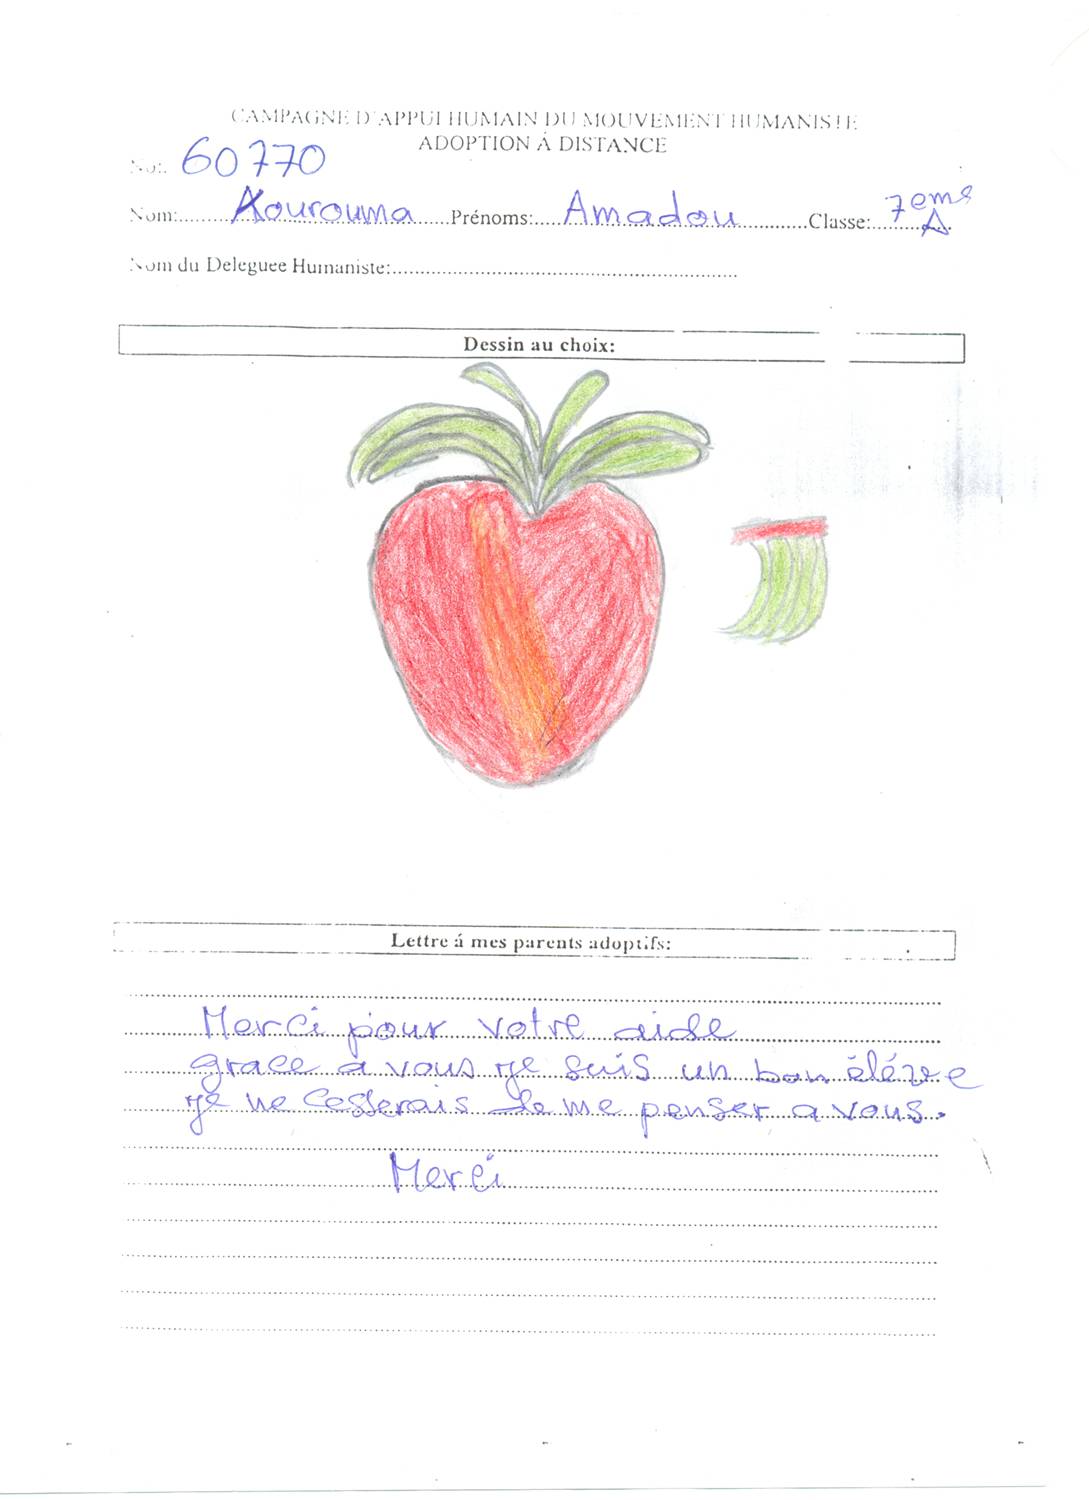 CAMPAGNE D'APPUI HUMAIN DU MOUVEMENT HUMANISTE
ADOPTION Á DISTANCE
No:. 60770
Nom:........Kourouma.....Prénoms:....Amadou...........Classe:..7eme A
Nom du Deleguee Humaniste:......................................................
Dessin au choix:
Lettre á mes parents adoptifs:
Merci pour votre aide
grace a vous je suis un bon éléve
je ne Cesserais de me penser a vous.
Merci